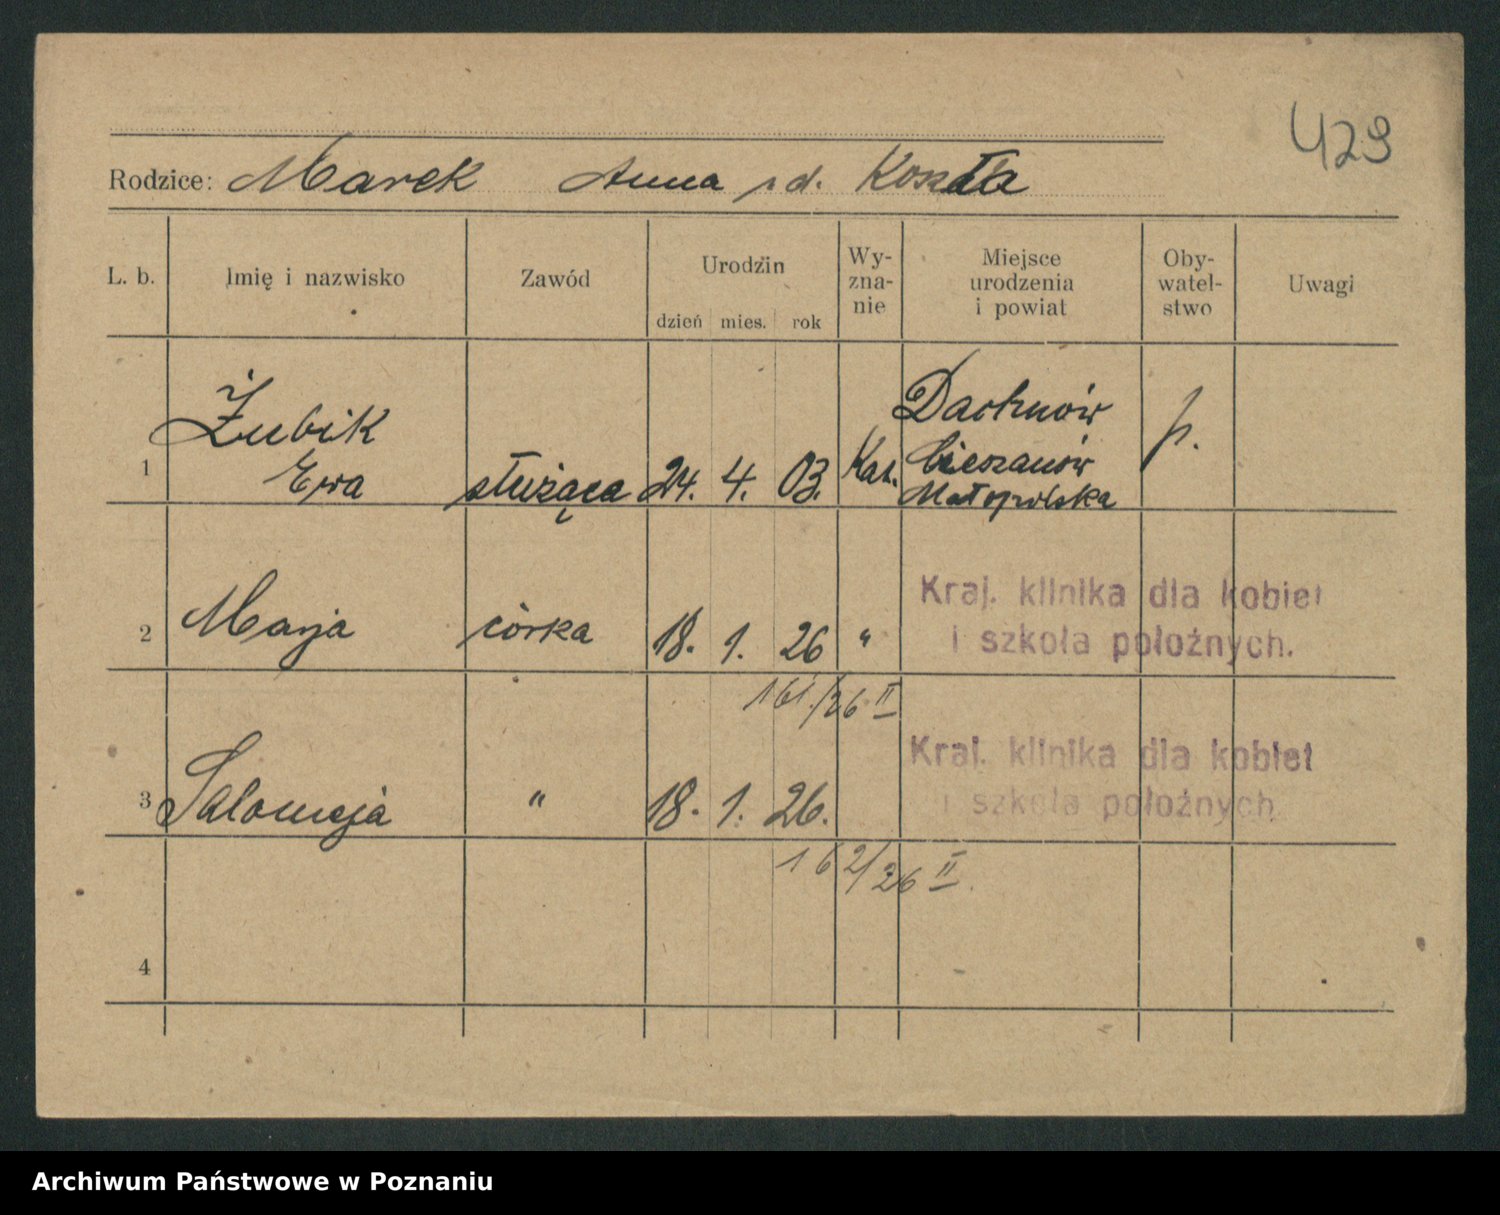 429
Rodzice: Marek Anna z d. Koszła
L. b. Imię i nazwisko Zawód Urodzin dzień mies. rok Wy-zna-nie Miejsce urodzenia i powiat Oby-watel-stwo Uwagi
Żubik
1 Ewa służąca 24. 4. 03. Kat. Dachnów
Cieszanów
Małopolska
p.
2 Marja córka 18. 1. 26 "
Kraj. klinika dla kobiet
i szkoła położnych.
161/26 II
3 Salomeja " 18. 1. 26.
Kraj. klinika dla kobiet
i szkoła położnych.
162/26 II
4
Archiwum Państwowe w Poznaniu